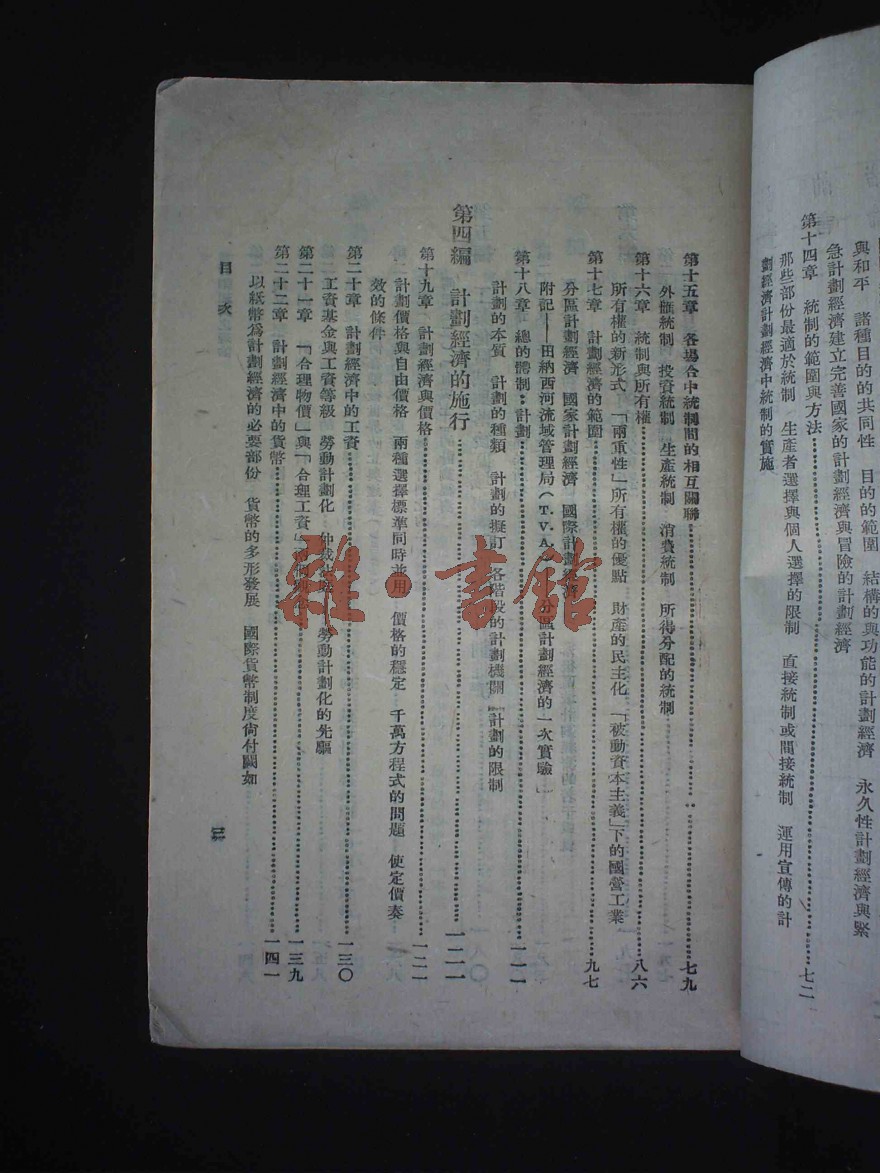 與和平　諸種目的的共同性　目的的範圍　結構的與功能的計劃經濟　永久性計劃經濟與緊
急計劃經濟建立完善國家的計劃經濟與冒險的計劃經濟
第十四章　統制的範圍與方法…………七二
那些部份最適於統制　生產者選擇與個人選擇的限制　直接統制或間接統制　運用宣傳的計
劃經濟計劃經濟中統制的實施
第十五章　各場合中統制間的相互關聯…………七九
外匯統制　投資統制　生產統制　消費統制　所得分配的統制
第十六章　統制與所有權…………八六
所有權的新形式　「兩重性」所有權的優點　財產的民主化　「被動資本主義」下的國營工業
第十七章　計劃經濟的範圍…………九七
分區計劃經濟　國家計劃經濟　國際計劃經濟
附記——田納西河流域管理局(T.V.A.)　分區計劃經濟的一次實驗」
第十八章　總的體制：計劃…………一一一
計劃的本質　計劃的種類　計劃的擬訂　各階段的計劃機關　計劃的限制
第四編　計劃經濟的施行…………一二一
第十九章　計劃經濟與價格…………一二一
計劃價格與自由價格　兩種選擇標準同時並用　價格的穩定　千萬方程式的問題　使定價奏
效的條件
第二十章　計劃經濟中的工資…………一三〇
工資基金與工資等級　勞動計劃化　仲裁　勞動計劃化的先驅
第二十一章　「合理物價」與「合理工資」…………一三九
第二十二章　計劃經濟中的貨幣…………一四一
以紙幣爲計劃經濟的必要部份　貨幣的多形發展　國際貨幣制度尙付闕如
目　次
三
雜·書館